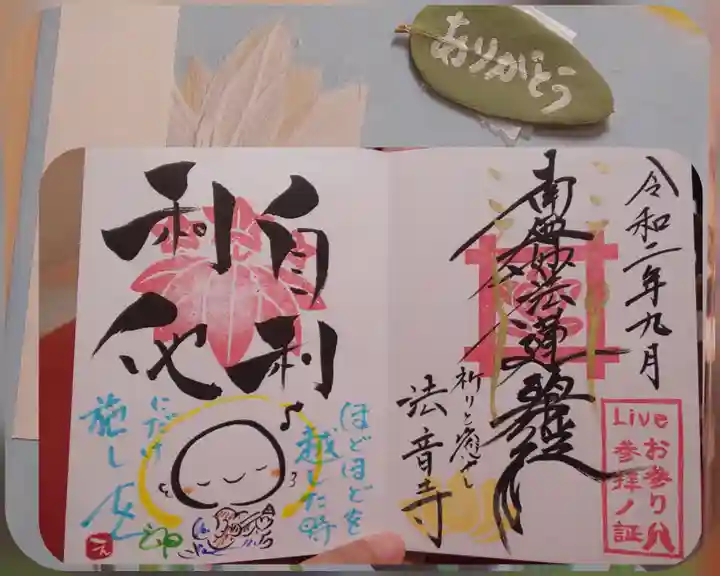 ありがとう
令和二年九月
南無妙法蓮華経
祈りと癒やし
法音寺
Liveお参り
参拝ノ証
自利
利他
ほどほどを
越した時
にだけ
施し